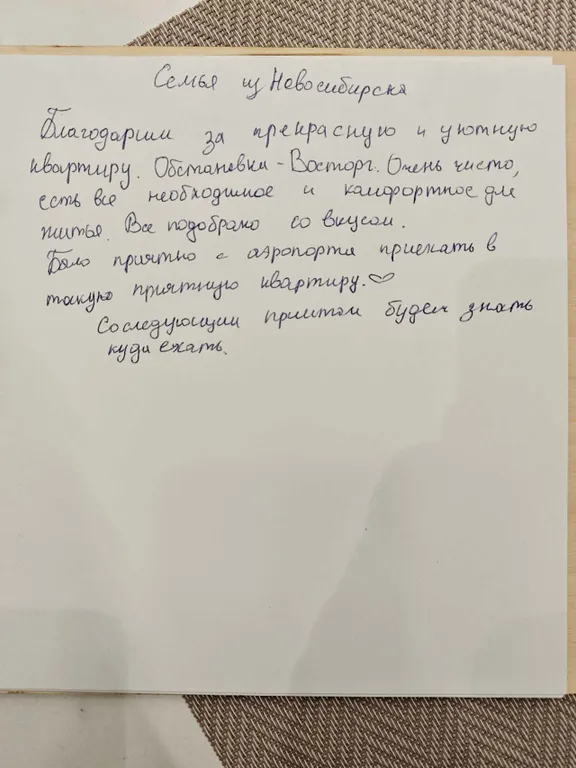 Семья из Новосибирска
Благодарим за прекрасную и уютную
квартиру. Обстановка - Восторг. Очень чисто,
есть всё необходимое и комфортное для
житья. Все подобрано со вкусом.
Было приятно с аэропорта приехать в
такую приятную квартиру.
Со следующим прилётом будем знать
куда ехать.